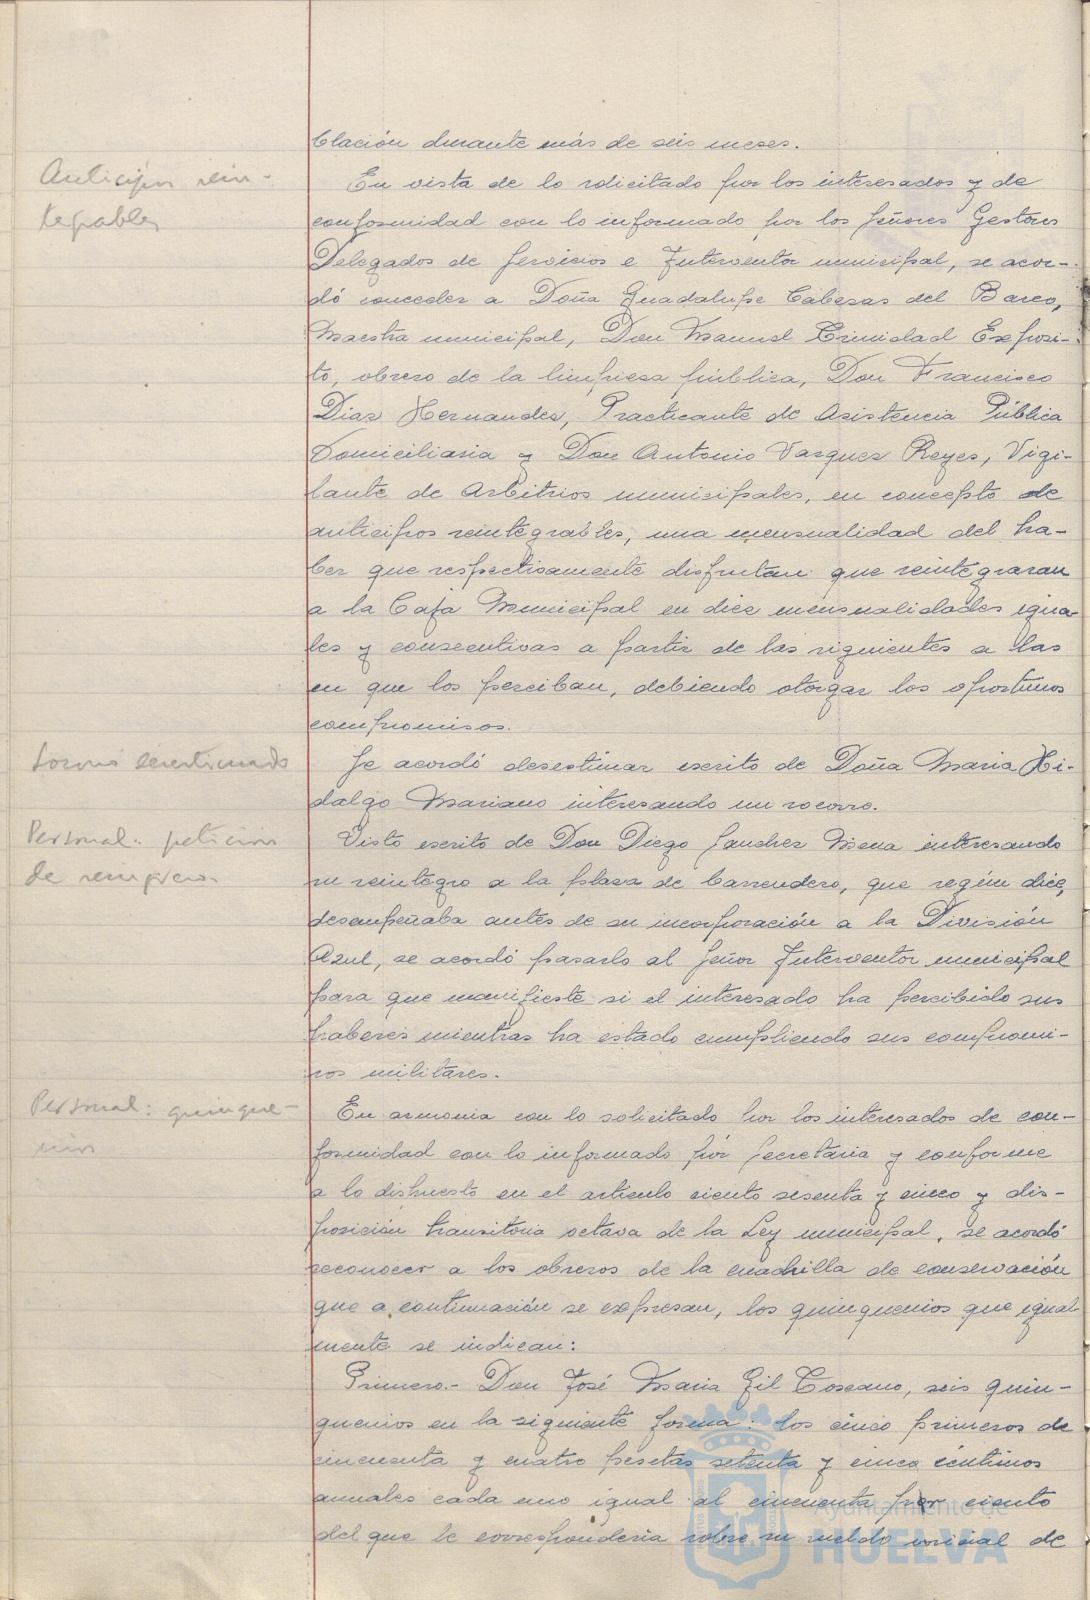 blación durante más de seis meses.
Anticipos rein-
tegrables
En vista de lo solicitado por los interesados y de
conformidad con lo informado por los Señores Gestores
Delegados de Servicios e Interventor municipal, se acor-
dó conceder a Doña Guadalupe Cabezas del Barco,
Maestra municipal, Don Manuel Trinidad Expósi-
to, obrero de la limpieza pública, Don Francisco
Diaz Hernandez, Practicante de Asistencia Pública
Domiciliaria y Don Antonio Vazquez Reyes, Vigi-
lante de Arbitrios municipales, en concepto de
anticipos reintegrables, una mensualidad del ha-
ber que respectivamente disfrutan que reintegraran
a la Caja Municipal en diez mensualidades igua-
les y consecutivas a partir de las siguientes a las
en que los perciban, debiendo otorgar los oportunos
compromisos.
Socorro desestimado
Se acordó desestimar escrito de Doña Maria Hi-
dalgo Mariano interesando un socorro.
Personal: petición
de reingreso.
Visto escrito de Don Diego Sanchez Mena interesando
su reintegro a la plaza de barrendero, que según dice,
desempeñaba antes de su incorporación a la División
Azul, se acordó pasarlo al Señor Interventor municipal
para que manifieste si el interesado ha percibido sus
haberes mientras ha estado cumpliendo sus compromi-
sos militares.
Personal: quinque-
nios
En armonia con lo solicitado por los interesados de con-
formidad con lo informado por Secretaria y conforme
a lo dispuesto en el articulo ciento sesenta y cinco y dis-
posición transitoria octava de la Ley municipal, se acordó
reconocer a los obreros de la cuadrilla de conservación
que a continuación se expresan, los quinquenios que igual-
mente se indican:
Primero.- Don José Maria Gil Toscano, seis quin-
quenios en la siguiente forma: los cinco primeros de
cincuenta y cuatro pesetas setenta y cinco céntimos
anuales cada uno igual al cincuenta por ciento
del que le correspondería sobre su sueldo inicial de
Ayuntamiento de
HUELVA